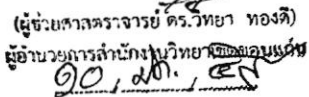 (ผู้ช่วยศาสตราจารย์ ดร.วิทยา ทองดี)
ผู้อำนวยการสำนักงานวิทยาเขตขอนแก่น
๑๐ , มี.ค. , ๕๙